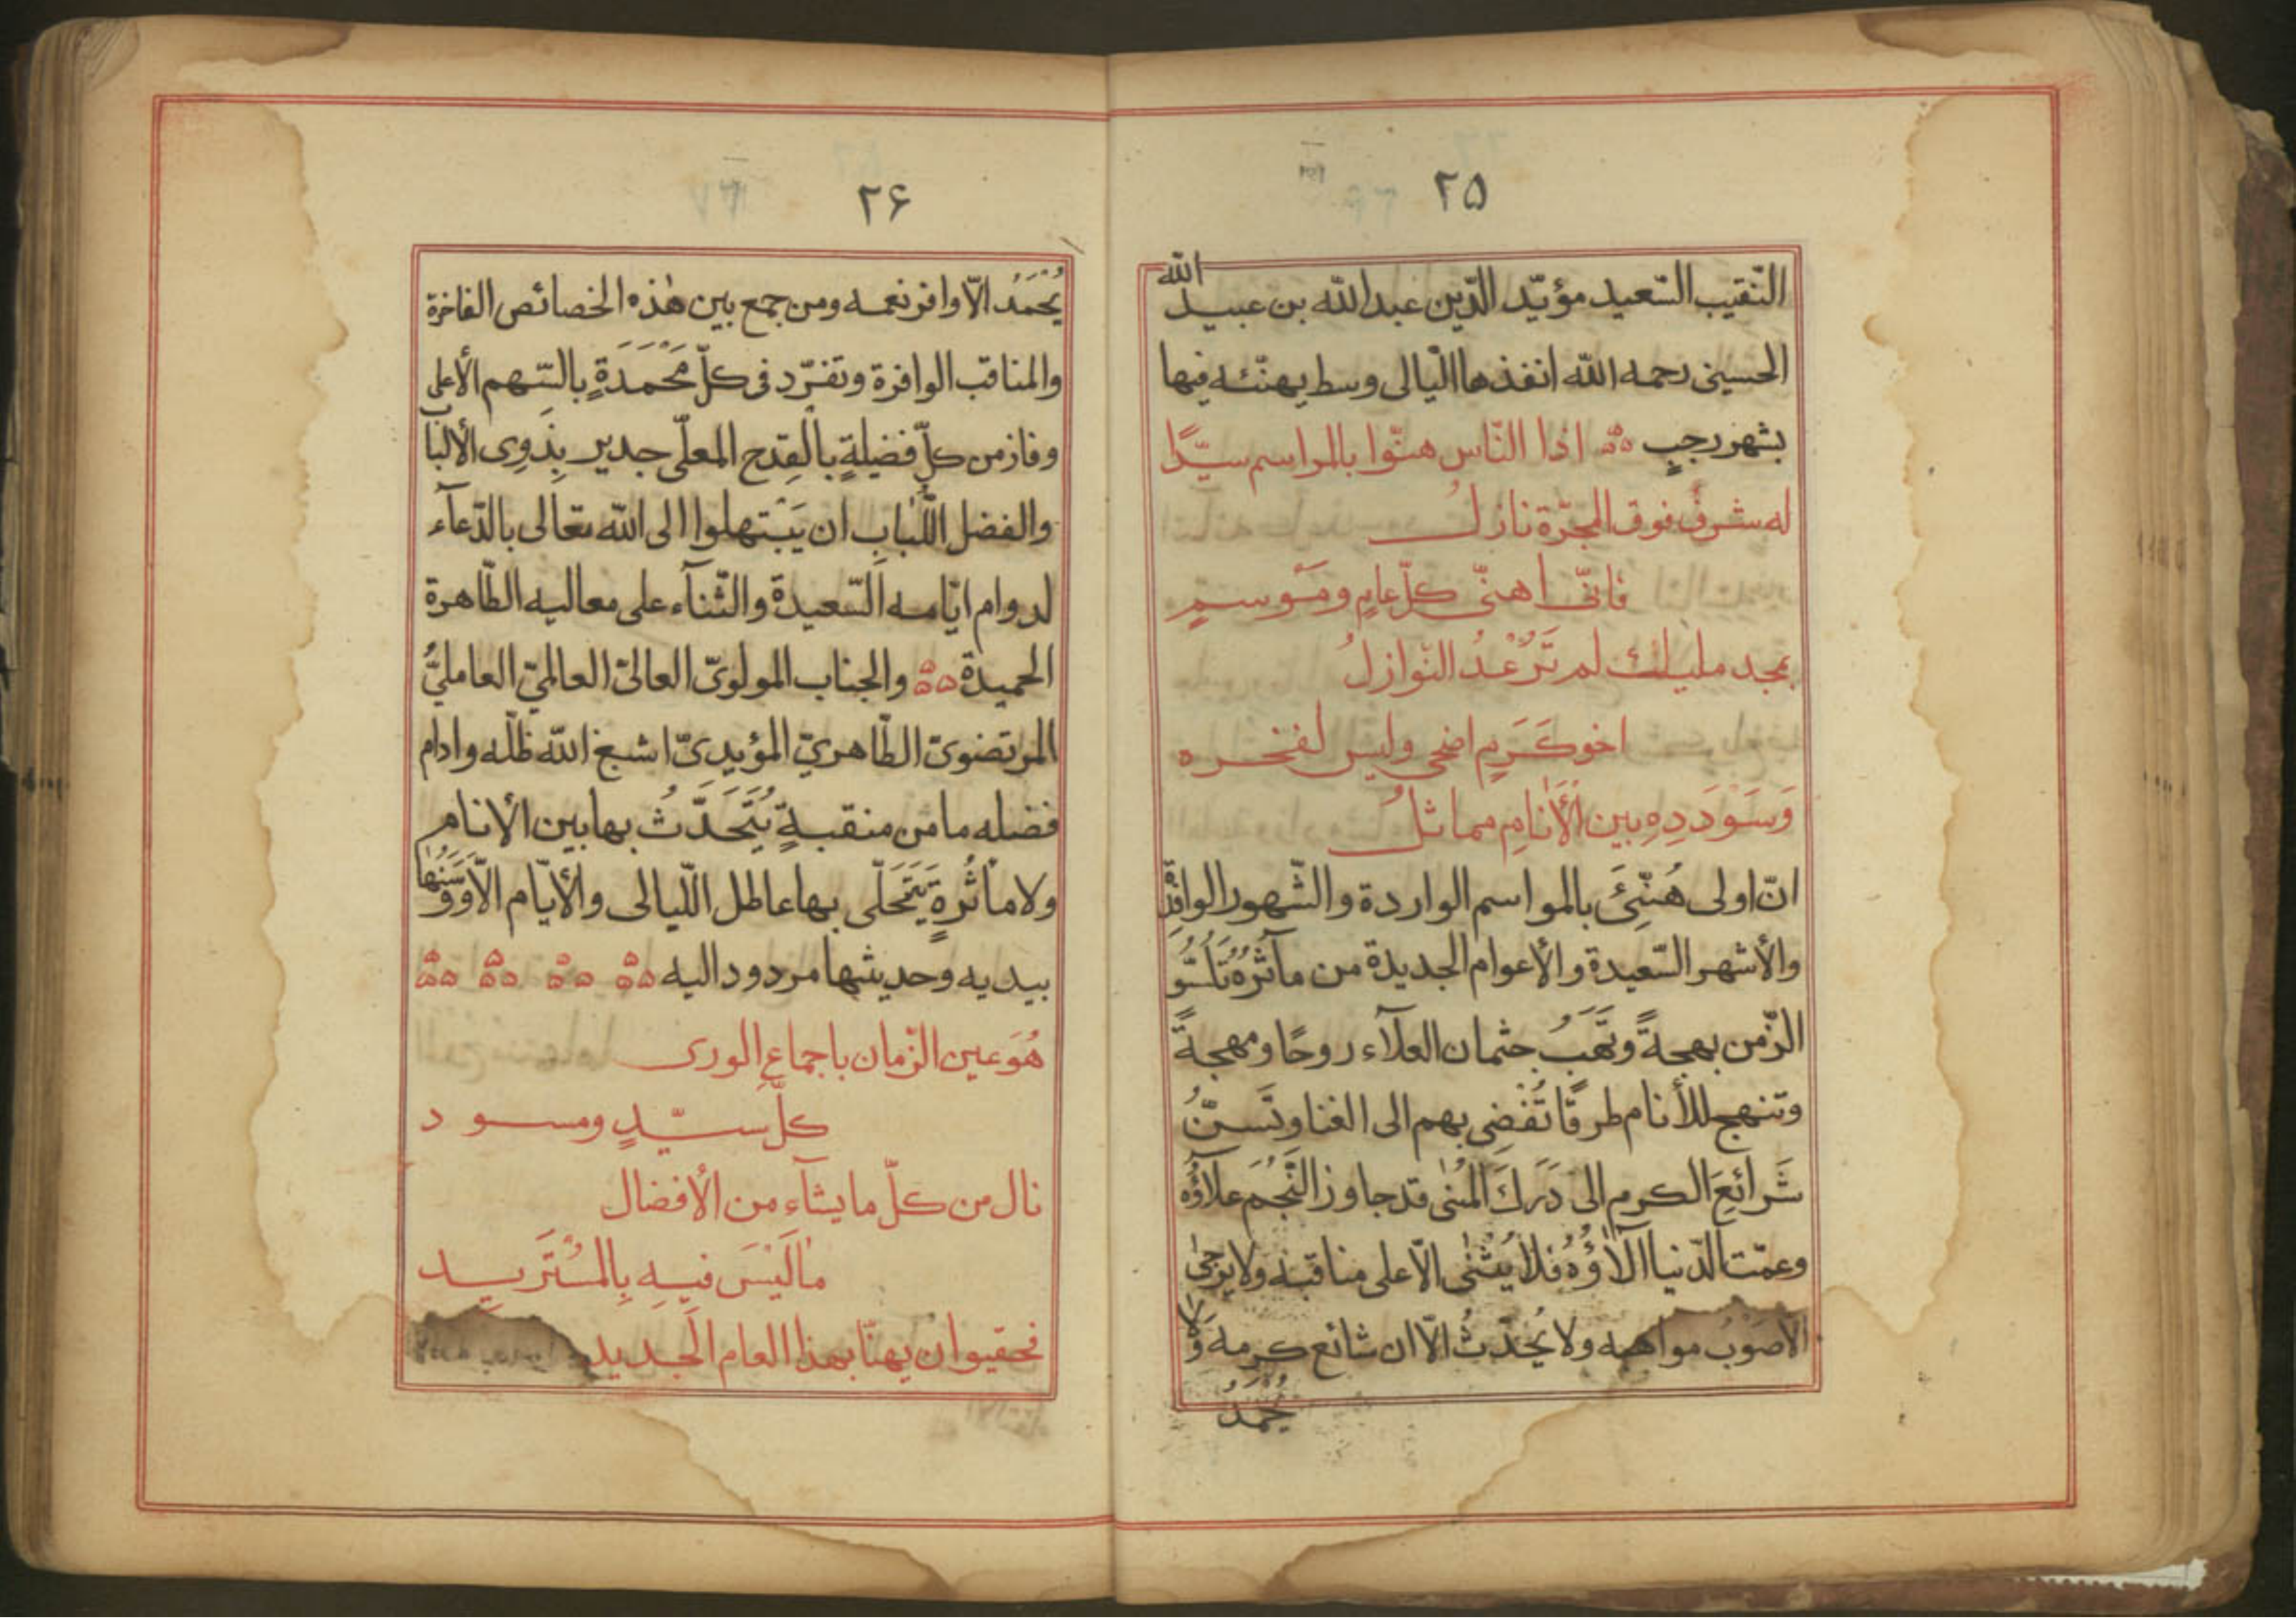 ٢۵
النّقيب السّعيد مؤيّد الدّين عبد الله بن عبيد الله
الحسينى رحمه الله انفذها الّيالى وسط يهنّئه فيها
بشهر رجبٍ اذا النّاس هنّوا بالمراسم سيّدًا
له شرفٌ فوق المجرّة نازلُ
فانّى اهنّى كلّ عامٍ ومَوْسمٍ
بمجد مليك لم تَرُعْهُ النّوازلُ
اخو كَرَمٍ اضحى وليس لفخره
وَسَوْدَدِهِ بين الْأَنَامِ مماثلُ
انّ اولى هُنّئَ بالمواسم الواردة والشّهور الوافدة
والأشهر السّعيدة والأعوام الجديدة من مآثرُهُ
الزّمن بهجةً وتَهَبُ جثمان العلآء روحًا ومهجةً
وتنهج للأنام طرقًا تُفْضِى بهم الى الغنا وتَسنّ
شَرائعَ الكرم الى دَرَكَ المُنى قد جاوز النَّجْمَ علاؤُه
وعمّت الدّنيا آلآؤُهُ فلا يُثنٰى الّا على مناقبه ولا يرجٰى
الّا صَوْبُ مواهبه ولا يُحَدّثُ الّا ان شائع كرمه وَلا
يُحْمَدُ
٢۶
يُحْمَدُ الّا وافر نعمه ومن جمع بين هٰذه الخصائص الفاخرة
والمناقب الوافرة وتفرّد فى كلّ مَحْمَدَةٍ بالسّهم الأعلى
وفاز من كلّ فضيلةٍ بالقِدح المعلّى جدير بِذَوِى الألباب
والفضل اللُّبابِ ان يَبْتهلوا الى الله تعالى بالدّعآء
لدوام ايّامه السّعيدة والثّنآء على معاليه الطّاهرة
الحميدة والجناب المولوىّ العالىّ العالمىّ العاملىُّ
المرتضوىّ الطّاهرىّ المؤيدىّ اشبغ الله ظلّه وادام
فضله ما من منقبةٍ يُتَحَدّثُ بها بين الأنام
ولا مأثُرةٍ يَتَحَلّى بها عاطل اللّيالى والأيّام الّا وَسَنُها
بيديه وحديثها مردود اليه
هُوَ عين الزّمان باجماعِ الورى
كلّ سيّدٍ ومسود
نال من كلّ ما يشآء من الأفضال
مٰا لَيْسَ فيه بِالْمُسْتَزيد
فحقيو ان يهنّا بهذا العام الجديد